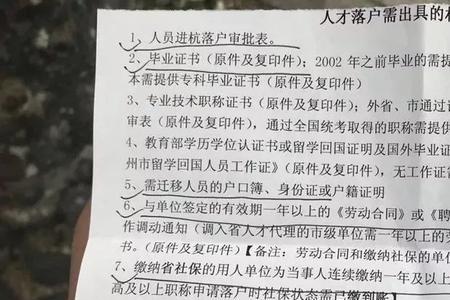 人才落户需出具的材
1、人员进杭落户审批表。
2、毕业证书（原件及复印件）；2002 年之前毕业的需提
本需提供专科毕业证书（原件及复印件）
3、专业技术职称证书（原件及复印件）；外省、市通过
审表（原件及复印件），通过全国统考取得的职称需提供
4、教育部学历学位认证书或留学回国证明及国外毕业证
州市留学回国人员工作证》（原件及复印件），无工作证需
5、需迁移人员的户口簿、身份证或户籍证明
6、与单位签定的有效期一年以上的《劳动合同》或《聘
作调动通知（调入省人才代理的市级单位需一年以上的劳
书。（原件及复印件）【备注：劳动合同和缴纳社保的单位
7、缴纳省社保的用人单位为当事人连续缴纳一年及以上
高及以上职称申请落户时社保状态需已缴到账